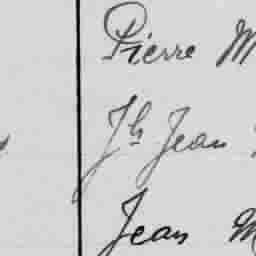 Pierre M
Jh Jean
Jean M